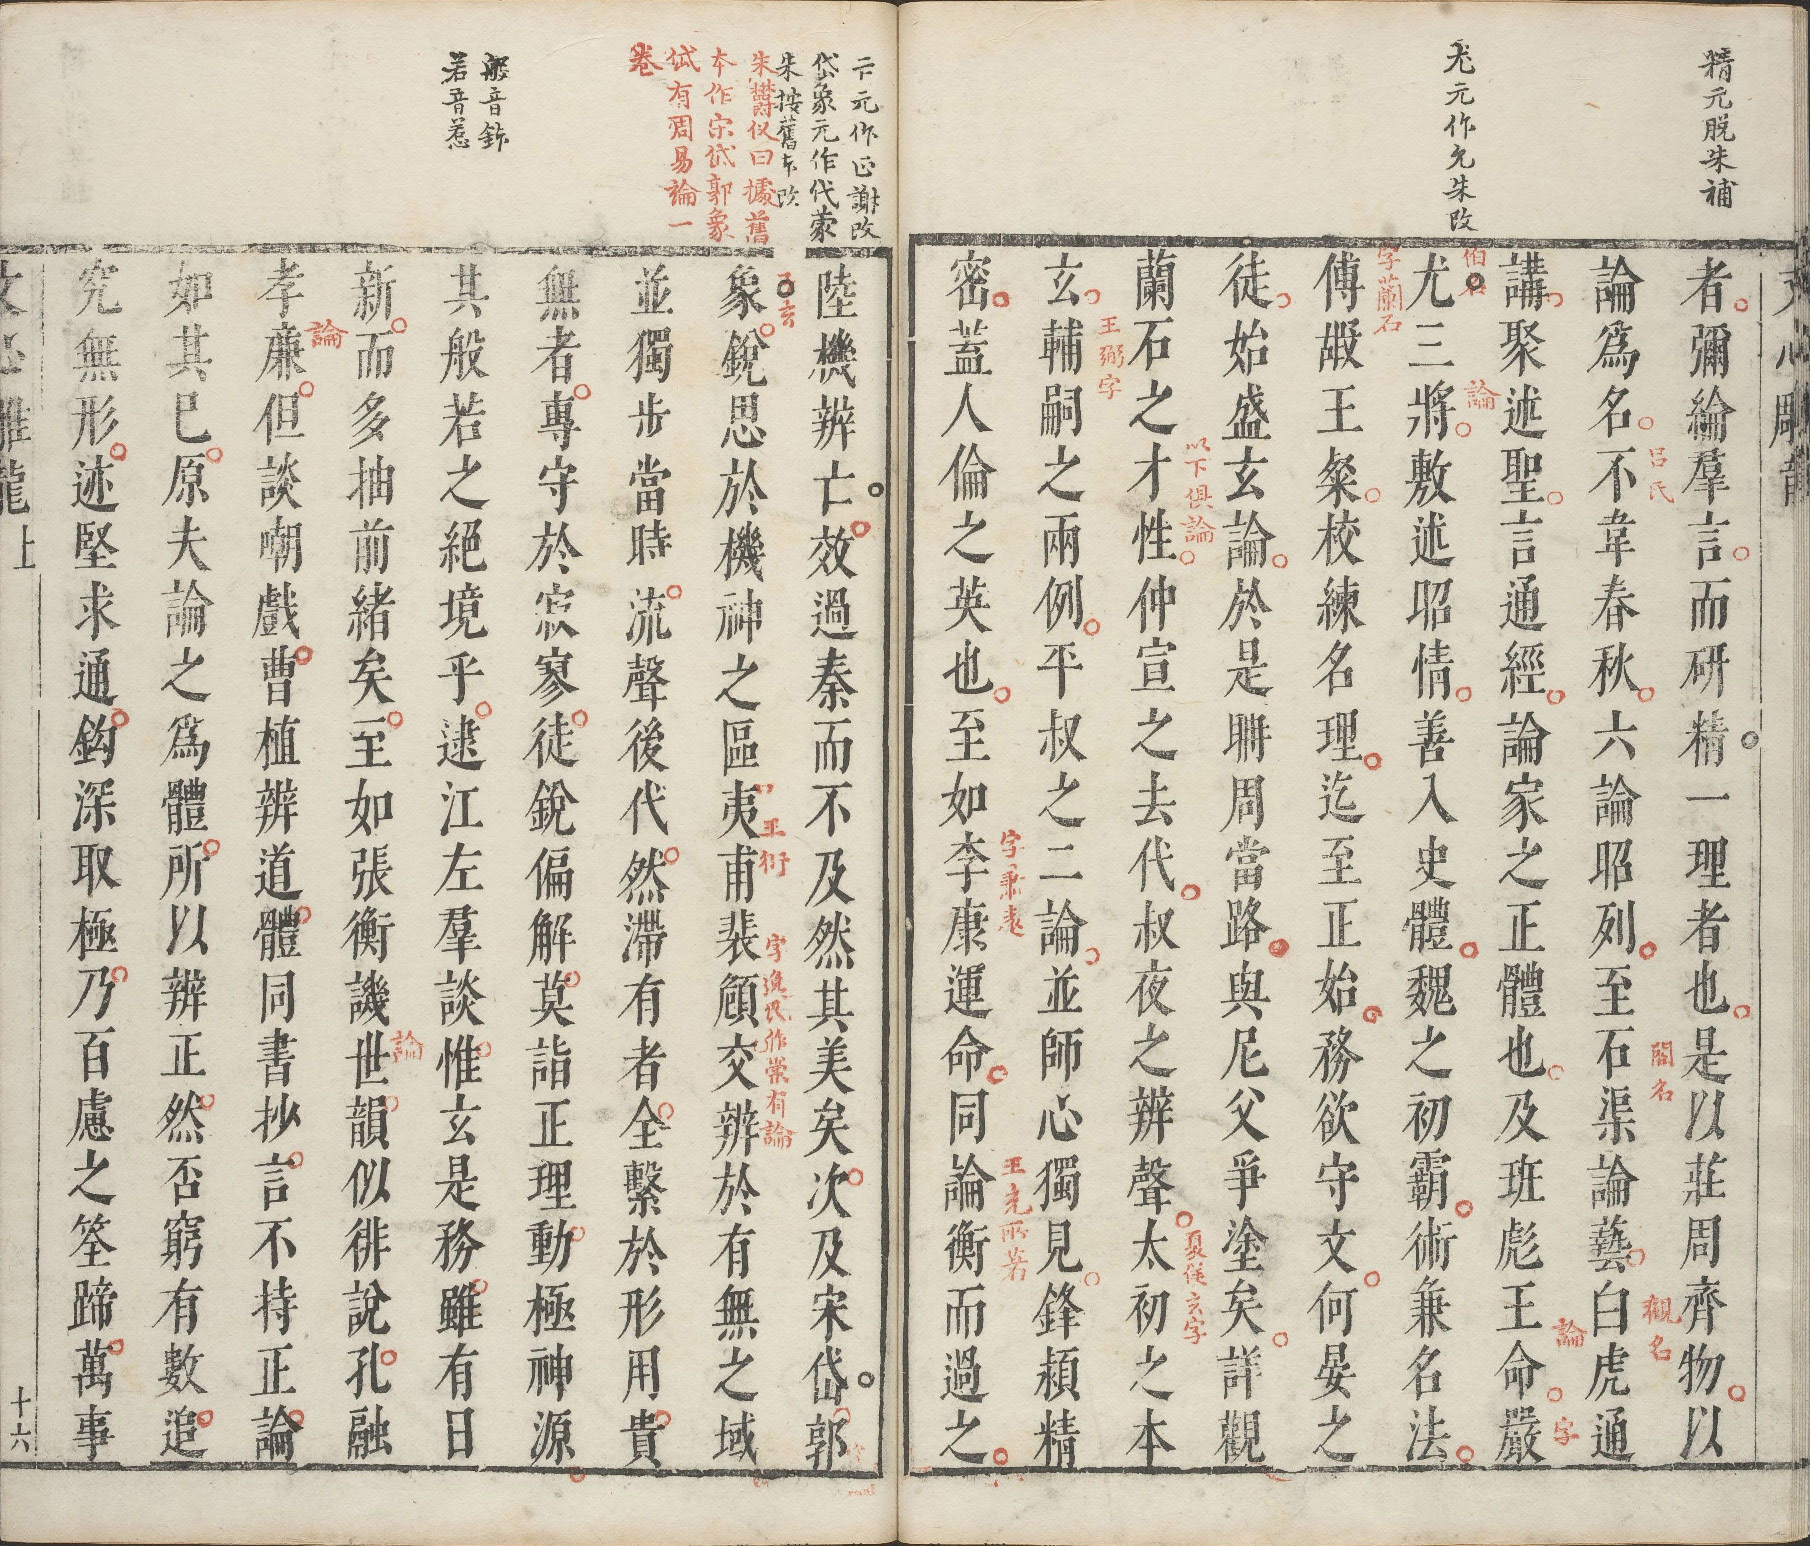 精元脫朱補
尤元作允朱改
文心雕龍
者彌綸羣言而研精一理者也是以莊周齊物以
論爲名不韋春秋六論昭列至石渠論藝白虎通
呂氏
閣名
觀名
講聚述聖言通經論家之正體也及班彪王命嚴
論
字
尤三將敷述昭情善入史體魏之初霸術兼名法
伯石
論
傅嘏王粲校練名理迄至正始務欲守文何晏之
字蘭石
徒始盛玄論於是聃周當路與尼父爭塗矣詳觀
蘭石之才性仲宣之去代叔夜之辨聲太初之本
以下俱論
夏侯玄字
玄輔嗣之兩例平叔之二論並師心獨見鋒穎精
王弼字
密蓋人倫之英也至如李康運命同論衡而過之
字蕭遠
王充所著
亡元作正謝改
岱象元作代蒙
朱按舊本改
朱鬱儀曰據舊
本作宋岱郭象
岱有周易論一
卷
般音鉢
若音惹
陸機辨亡效過秦而不及然其美矣次及宋岱郭
象銳思於機神之區夷甫裴頠交辨於有無之域
子玄
王衍
字逸民作崇有論
並獨步當時流聲後代然滯有者全繫於形用貴
無者專守於寂寥徒銳偏解莫詣正理動極神源
其般若之絕境乎逮江左羣談惟玄是務雖有日
新而多抽前緒矣至如張衡譏世韻似徘說孔融
論
孝廉但談嘲戲曹植辨道體同書抄言不持正論
論
如其已原夫論之爲體所以辨正然否窮有數追
究無形迹堅求通鈎深取極乃百慮之筌蹄萬事
文心雕龍上
十六